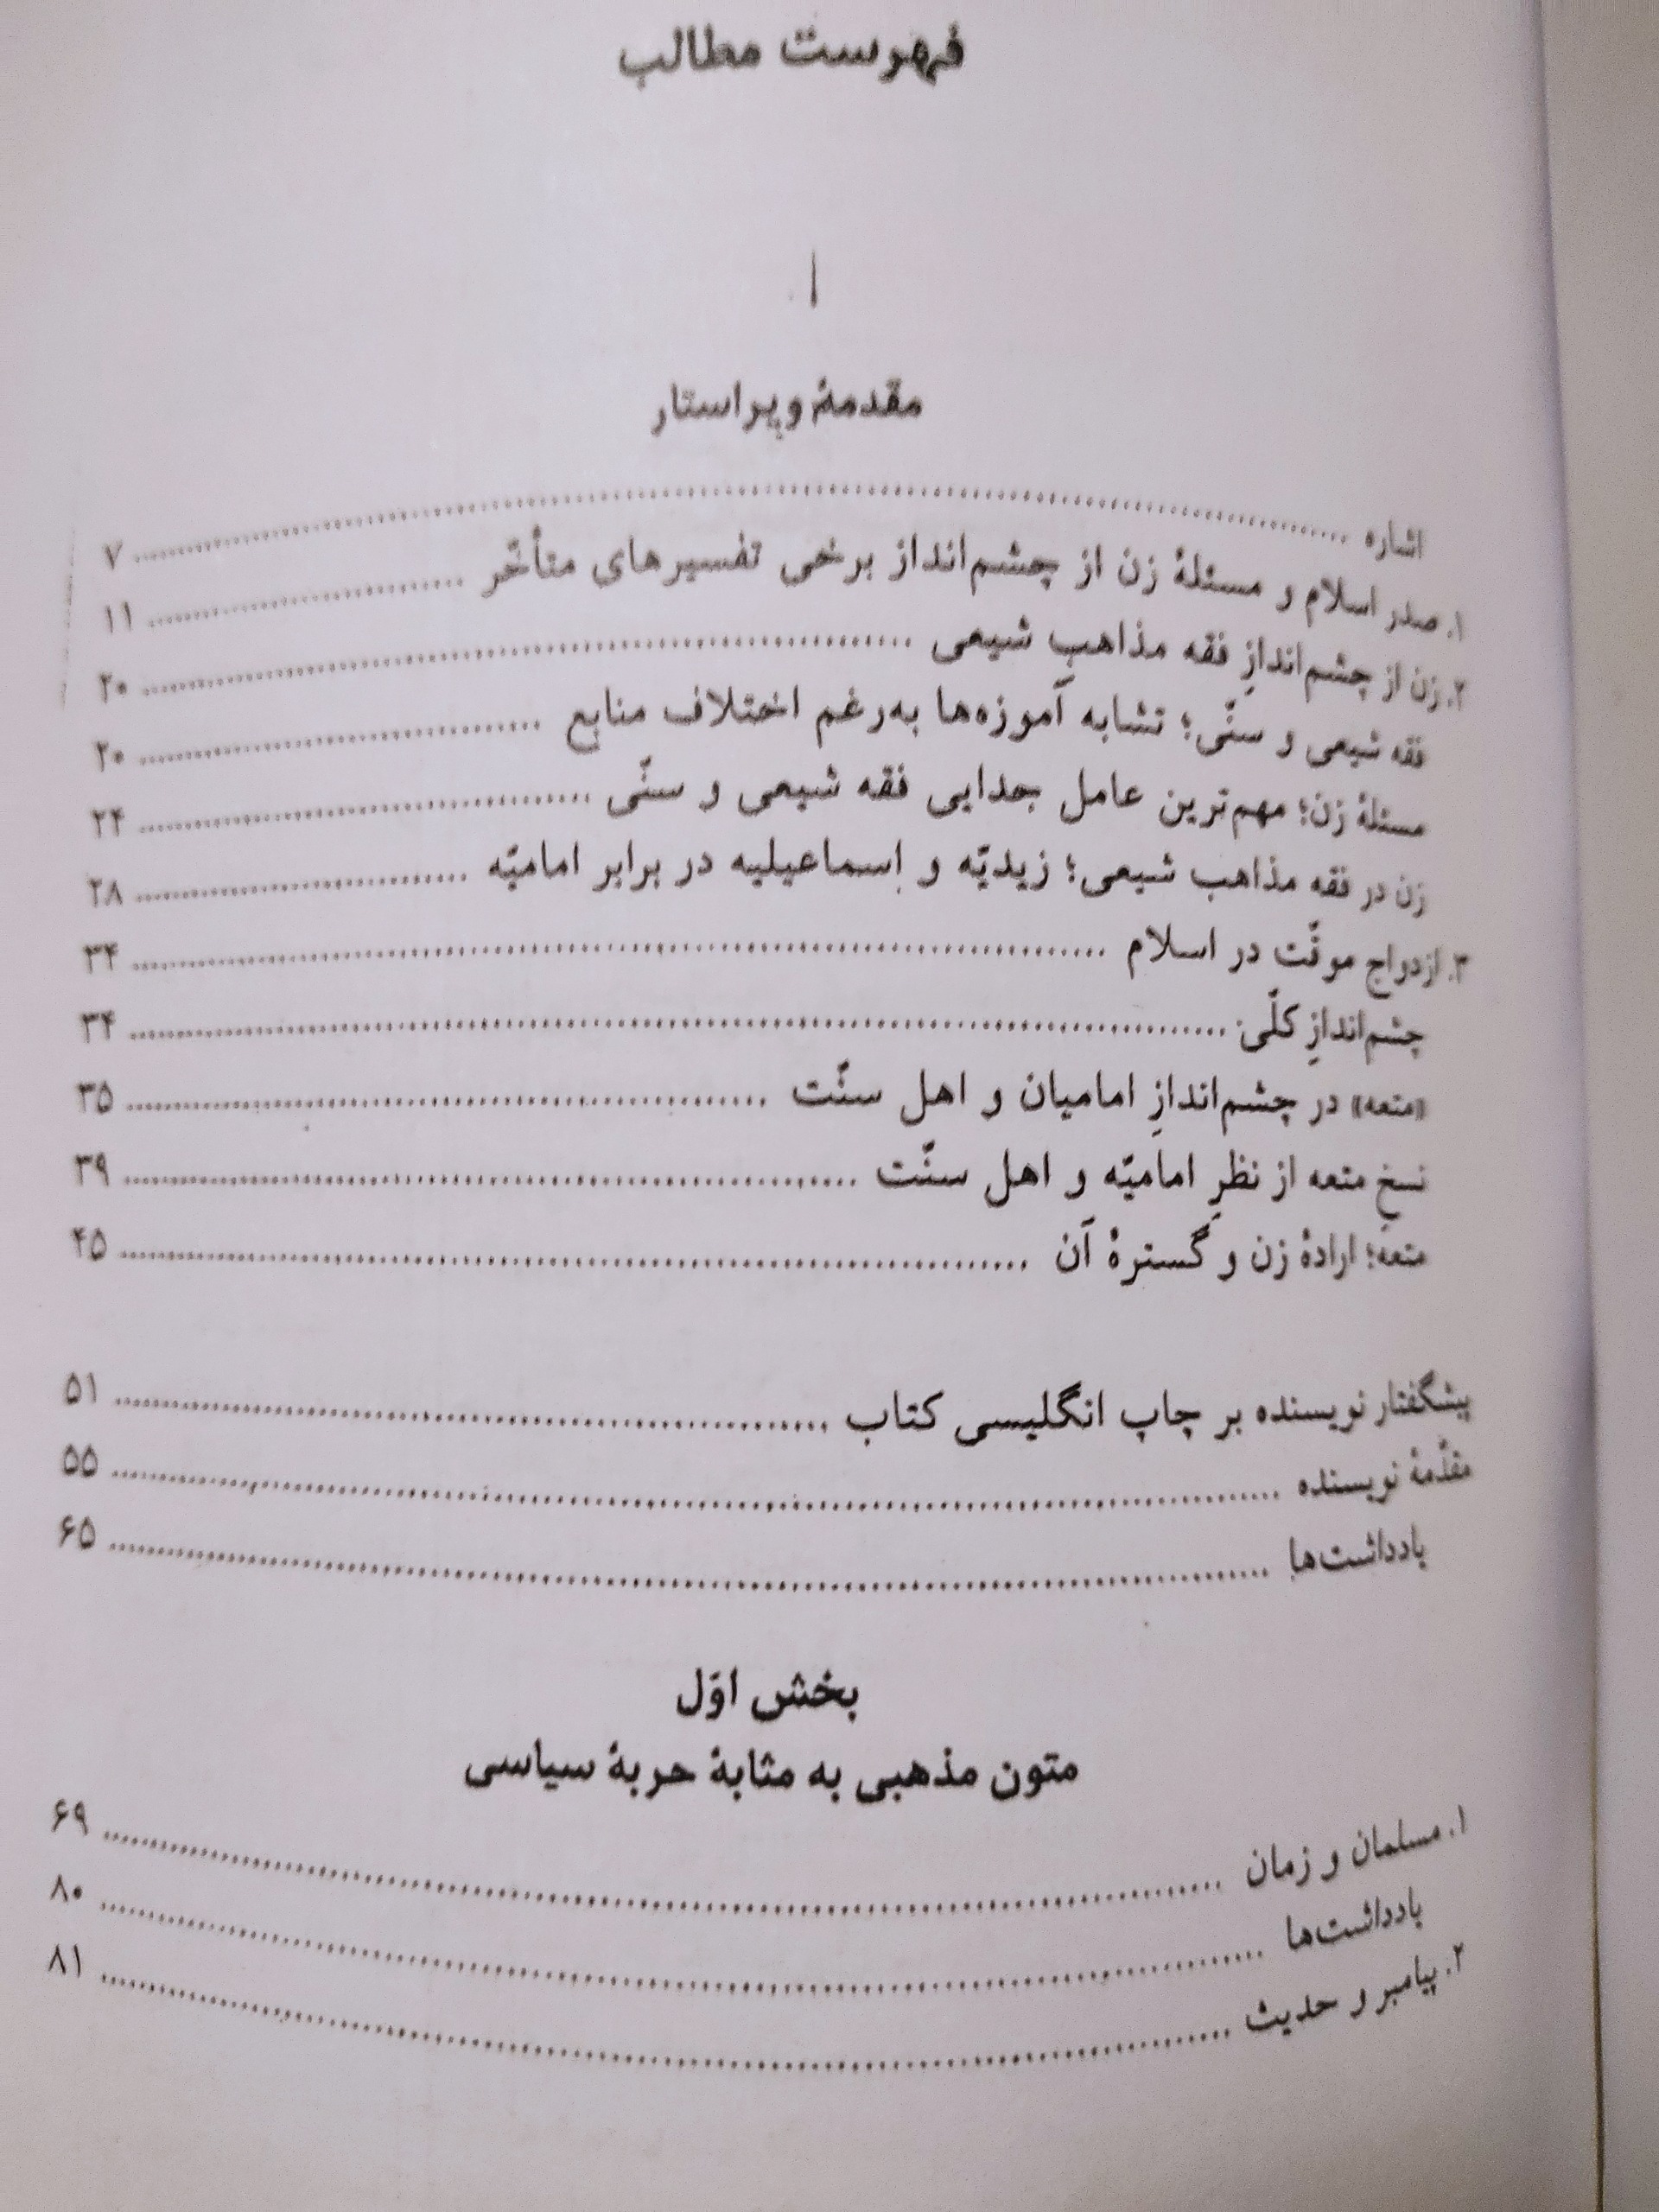 فهرست مطالب
ا
مقدمهٔ ویراستار
اشاره ........ ۷
۱. صدر اسلام و مسئلهٔ زن از چشم‌انداز برخی تفسیرهای متأخّر ........ ۱۱
۲. زن از چشم‌اندازِ فقه مذاهبِ شیعی ........ ۲۰
فقه شیعی و سنّی؛ تشابه آموزه‌ها به‌رغم اختلاف منابع ........ ۲۰
مسئلهٔ زن؛ مهم‌ترین عامل جدایی فقه شیعی و سنّی ........ ۲۴
زن در فقه مذاهب شیعی؛ زیدیّه و اِسماعیلیه در برابر امامیّه ........ ۲۸
۳. ازدواج موقّت در اسلام ........ ۳۴
چشم‌اندازِ کلّی ........ ۳۴
«متعه» در چشم‌اندازِ امامیان و اهل سنّت ........ ۳۵
نسخ متعه از نظرِ امامیّه و اهل سنّت ........ ۳۹
متعه؛ ارادهٔ زن و گسترهٔ آن ........ ۴۵
پیشگفتار نویسنده بر چاپ انگلیسی کتاب ........ ۵۱
مقدّمهٔ نویسنده ........ ۵۵
یادداشت‌ها ........ ۶۵
بخش اوّل
متون مذهبی به مثابهٔ حربهٔ سیاسی
۱. مسلمان و زمان ........ ۶۹
یادداشت‌ها ........ ۸۰
۲. پیامبر و حدیث ........ ۸۱